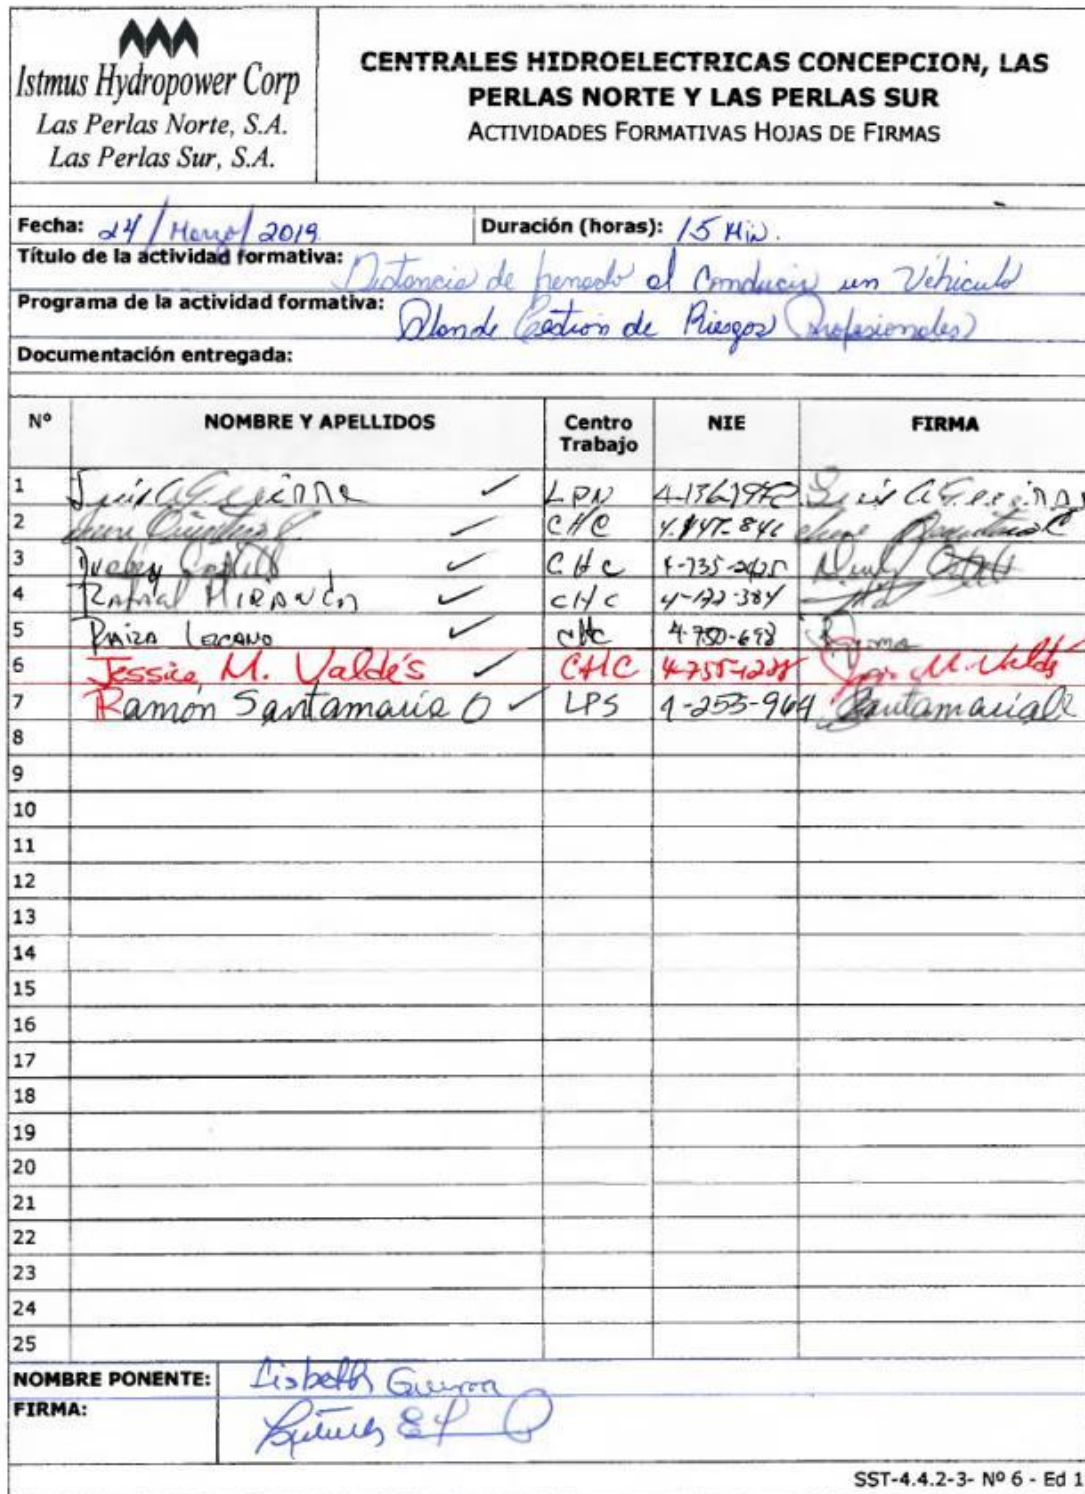 Istmus Hydropower Corp
Las Perlas Norte, S.A.
Las Perlas Sur, S.A.
CENTRALES HIDROELECTRICAS CONCEPCION, LAS
PERLAS NORTE Y LAS PERLAS SUR
ACTIVIDADES FORMATIVAS HOJAS DE FIRMAS
Fecha: 24/Marzo/2019 Duración (horas): 15 Min.
Título de la actividad formativa: Distancia de frenado al Conducir un Vehiculo
Programa de la actividad formativa: Plan de Gestion de Riesgos Profesionales
Documentación entregada:
Nº NOMBRE Y APELLIDOS Centro Trabajo NIE FIRMA
1 Luis A LPN Luis A
2 CHC 4.147-846
3 CHC
4 Rafael MIRANDA CHC 4-172-384
5 RAIZA LEZCANO CHC 4-750-698
6 Jessica M. Valdés CHC M. Valdés
7 Ramón Santamaria O LPS
8
9
10
11
12
13
14
15
16
17
18
19
20
21
22
23
24
25
NOMBRE PONENTE: Lisbeth
FIRMA:
SST-4.4.2-3- Nº 6 - Ed 1